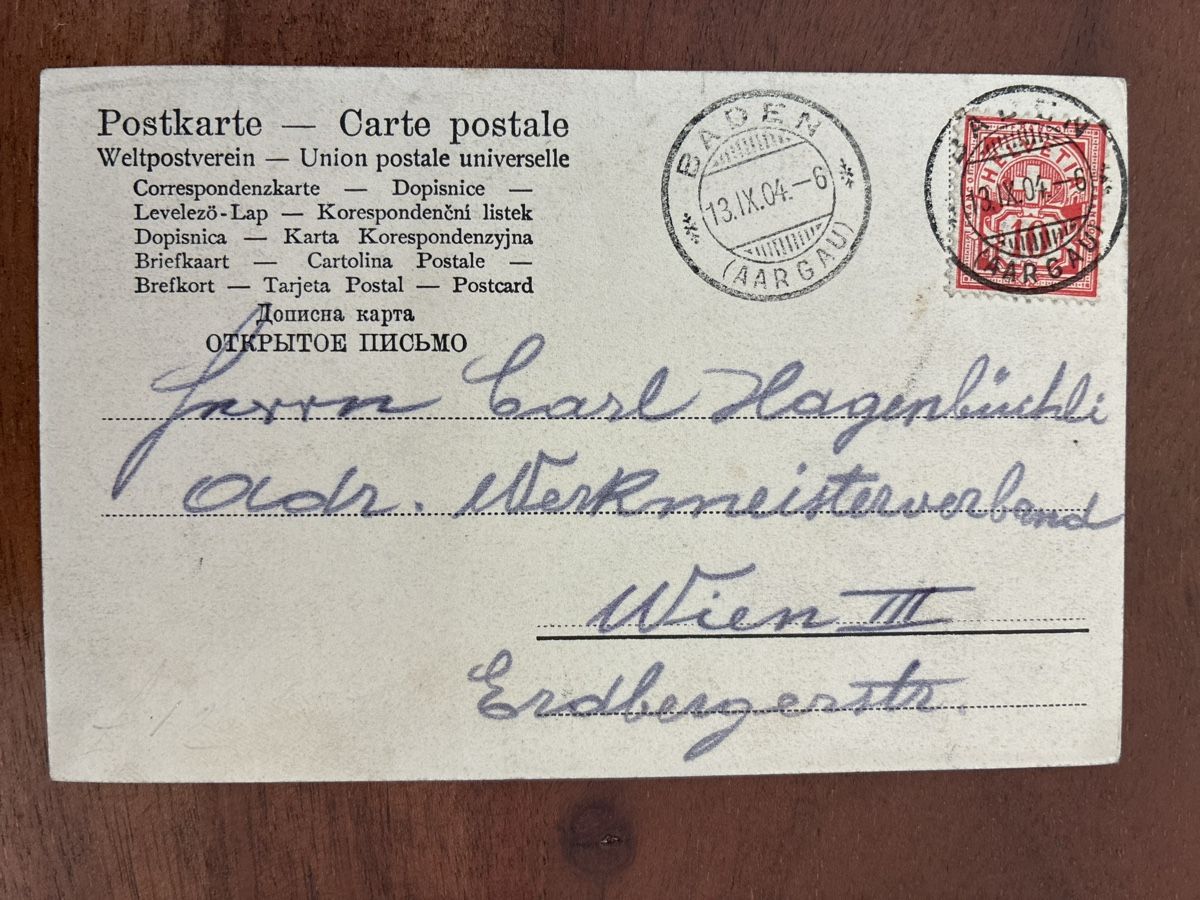 Postkarte — Carte postale
Weltpostverein — Union postale universelle
Correspondenzkarte — Dopisnice —
Levelezö-Lap — Korespondenční listek
Dopisnica — Karta Korespondenzyjna
Briefkaart — Cartolina Postale —
Brefkort — Tarjeta Postal — Postcard
Дописна карта
ОТКРЫТОЕ ПИСЬМО
BADEN
13.IX.04.–6
(AARGAU)
BADEN
HELVETIA
13.IX.04.–6
10
(AARGAU)
Herrn Carl Hagenbüchli
Adr. Werkmeisterverband
Wien III
Erdbergerstr.